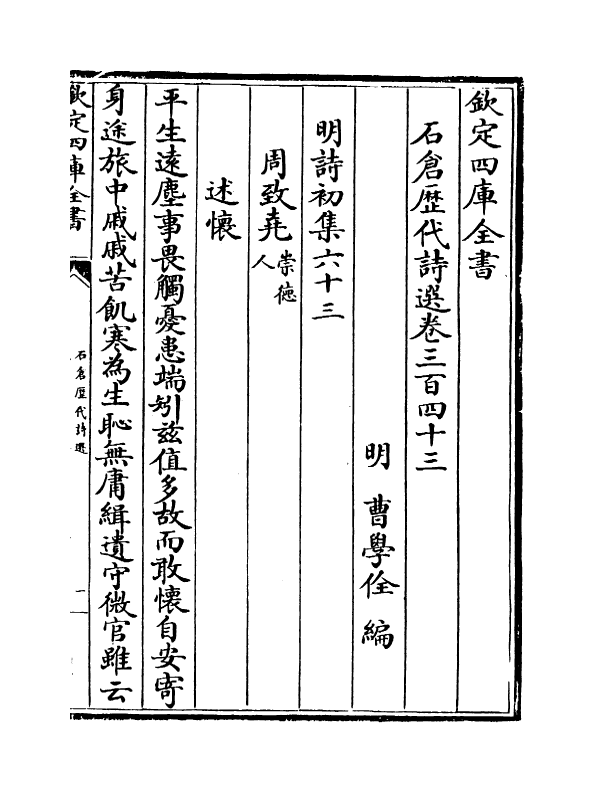 欽定四庫全書
石倉歷代詩選卷三百四十三
明 曹學佺 編
明詩初集六十三
周致堯崇德人
述懷
平生遠塵事畏觸憂患端矧兹值多故而敢懷自安寄
身途旅中戚戚苦飢寒為生恥無庸緝遺守微官雖云
欽定四庫全書
石倉歷代詩選
一